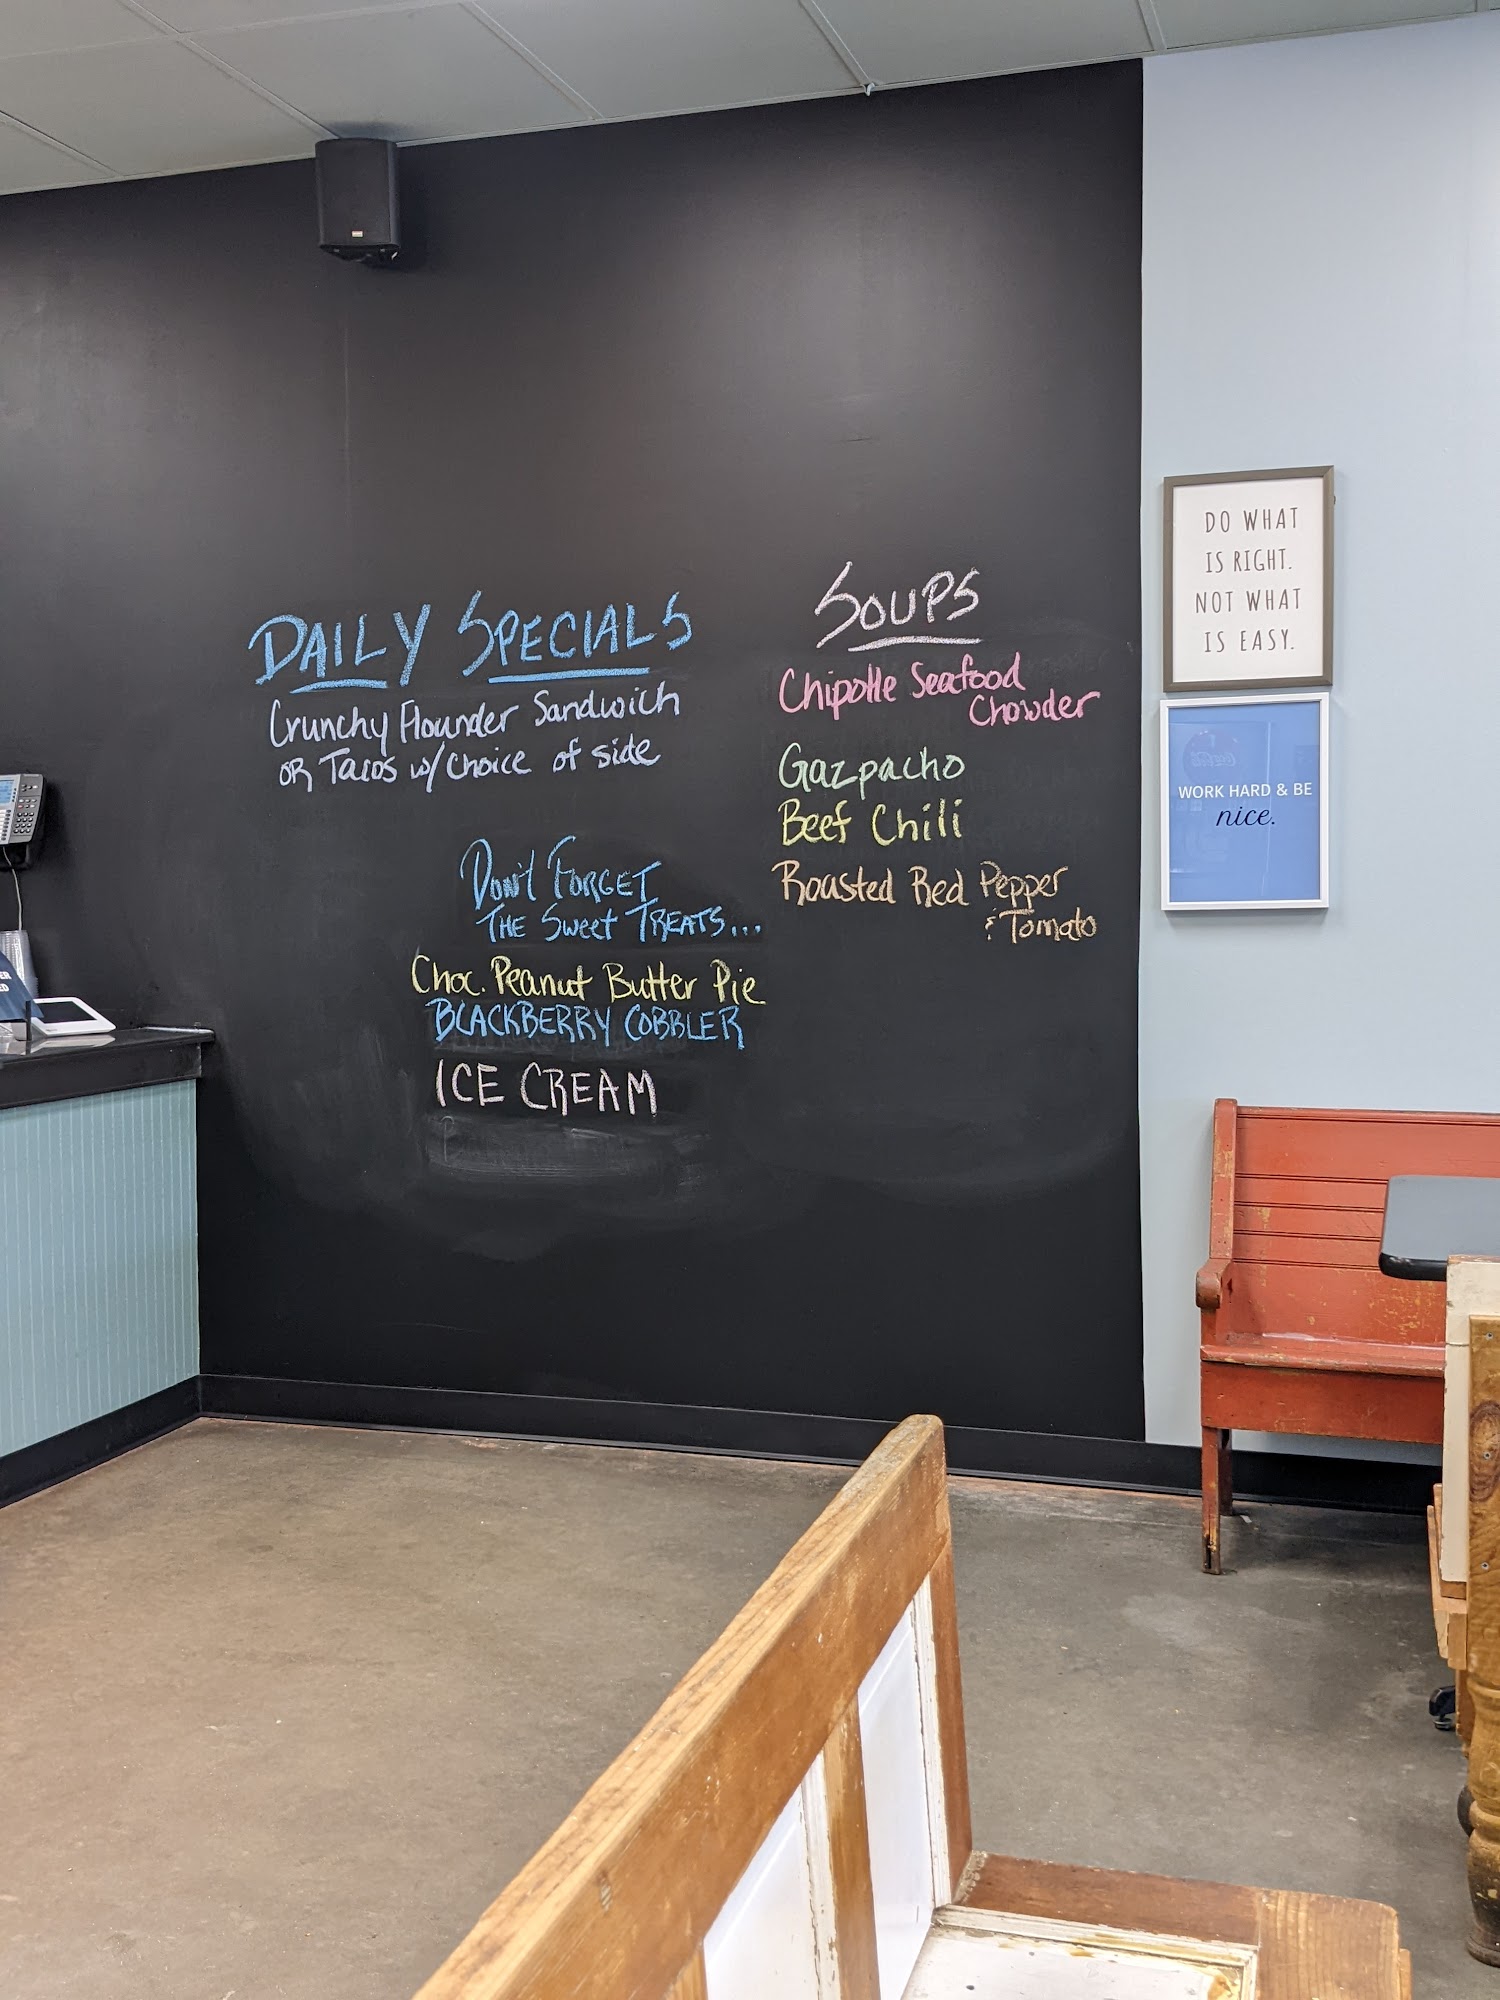 DAILY SPECIALS
Crunchy Flounder Sandwich
OR Tacos w/ choice of side
DON'T FORGET
THE Sweet TREATS...
Choc. Peanut Butter Pie
BLACKBERRY COBBLER
ICE CREAM
SOUPS
Chipotle Seafood
Chowder
Gazpacho
Beef Chili
Roasted Red Pepper
& Tomato
DO WHAT
IS RIGHT.
NOT WHAT
IS EASY.
WORK HARD & BE
nice.